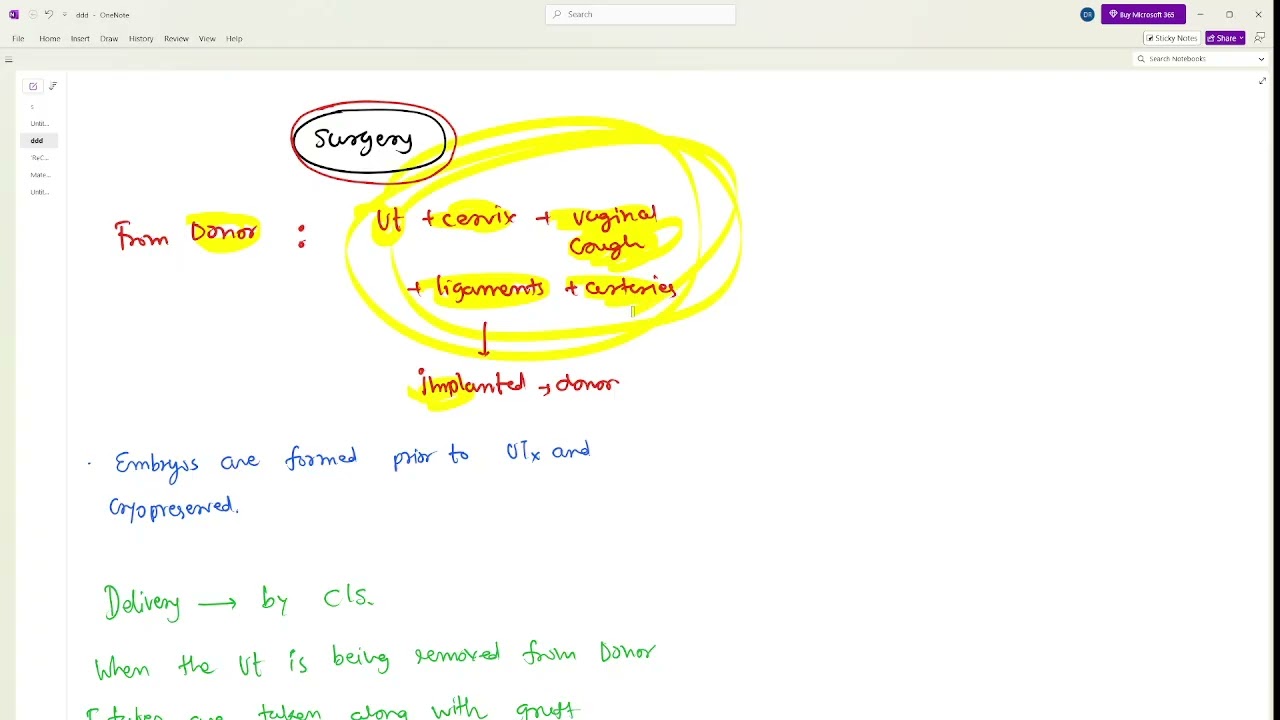 ddd - OneNote
Search
DR
Buy Microsoft 365
File Home Insert Draw History Review View Help
Sticky Notes
Share
Search Notebooks
s
Untit...
ddd
'ReC...
Mate...
Untit...
Surgery
From Donor : Ut + cervix + vaginal
cough
+ ligaments + arteries
implanted → donor
. Embryos are formed prior to UTx and
Cryopreserved.
Delivery → by C/S.
When the Ut is being removed from Donor
taken along with graft